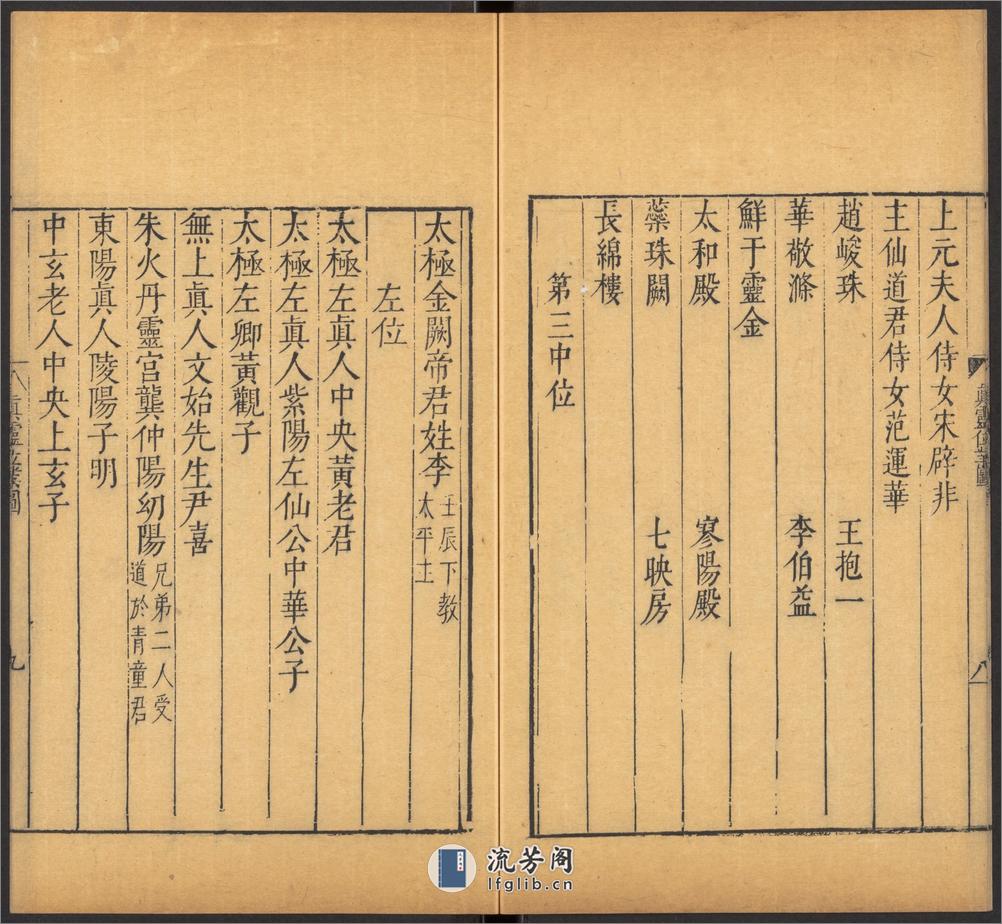 上元夫人侍女宋辟非
主仙道君侍女范運華
趙峻珠 王抱一
華敬滌 李伯益
鮮于靈金
太和殿 寒陽殿
蘂珠闕 七映房
長綿樓
第三中位
八
太極金闕帝君姓李 壬辰下教
太平主
左位
太極左眞人中央黃老君
太極左眞人紫陽左仙公中華公子
太極左卿黃觀子
無上眞人文始先生尹喜
朱火丹靈宮龔仲陽幼陽 兄弟二人受
道於青童君
東陽眞人陵陽子明
中玄老人中央上玄子
九
流芳阁
lfglib.cn